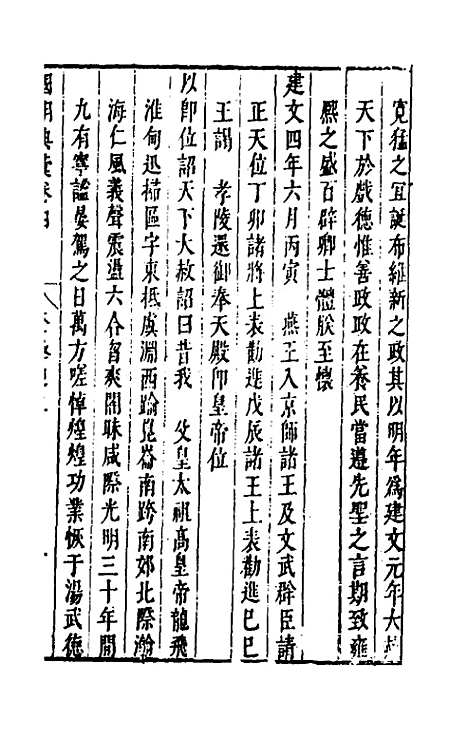 寬猛之宜誕布維新之政其以明年爲建文元年大赦
天下於戲德惟善政政在養民當遵先聖之言期致雍
熙之盛百辟卿士體朕至懷
建文四年六月丙寅 燕王入京師諸王及文武群臣請
正天位丁卯諸將上表勸進戊辰諸王上表勸進己巳
王謁 孝陵還御奉天殿卽皇帝位
以卽位詔天下大赦詔曰昔我 父皇太祖高皇帝龍飛
淮甸迅掃區宇東抵虞淵西踰崑崙南跨南郊北際瀚
海仁風義聲震盪六合曶爽闇昧咸際光明三十年間
九有寧謐晏駕之日萬方嗟悼煌煌功業恢于湯武德
國朝典彙卷四